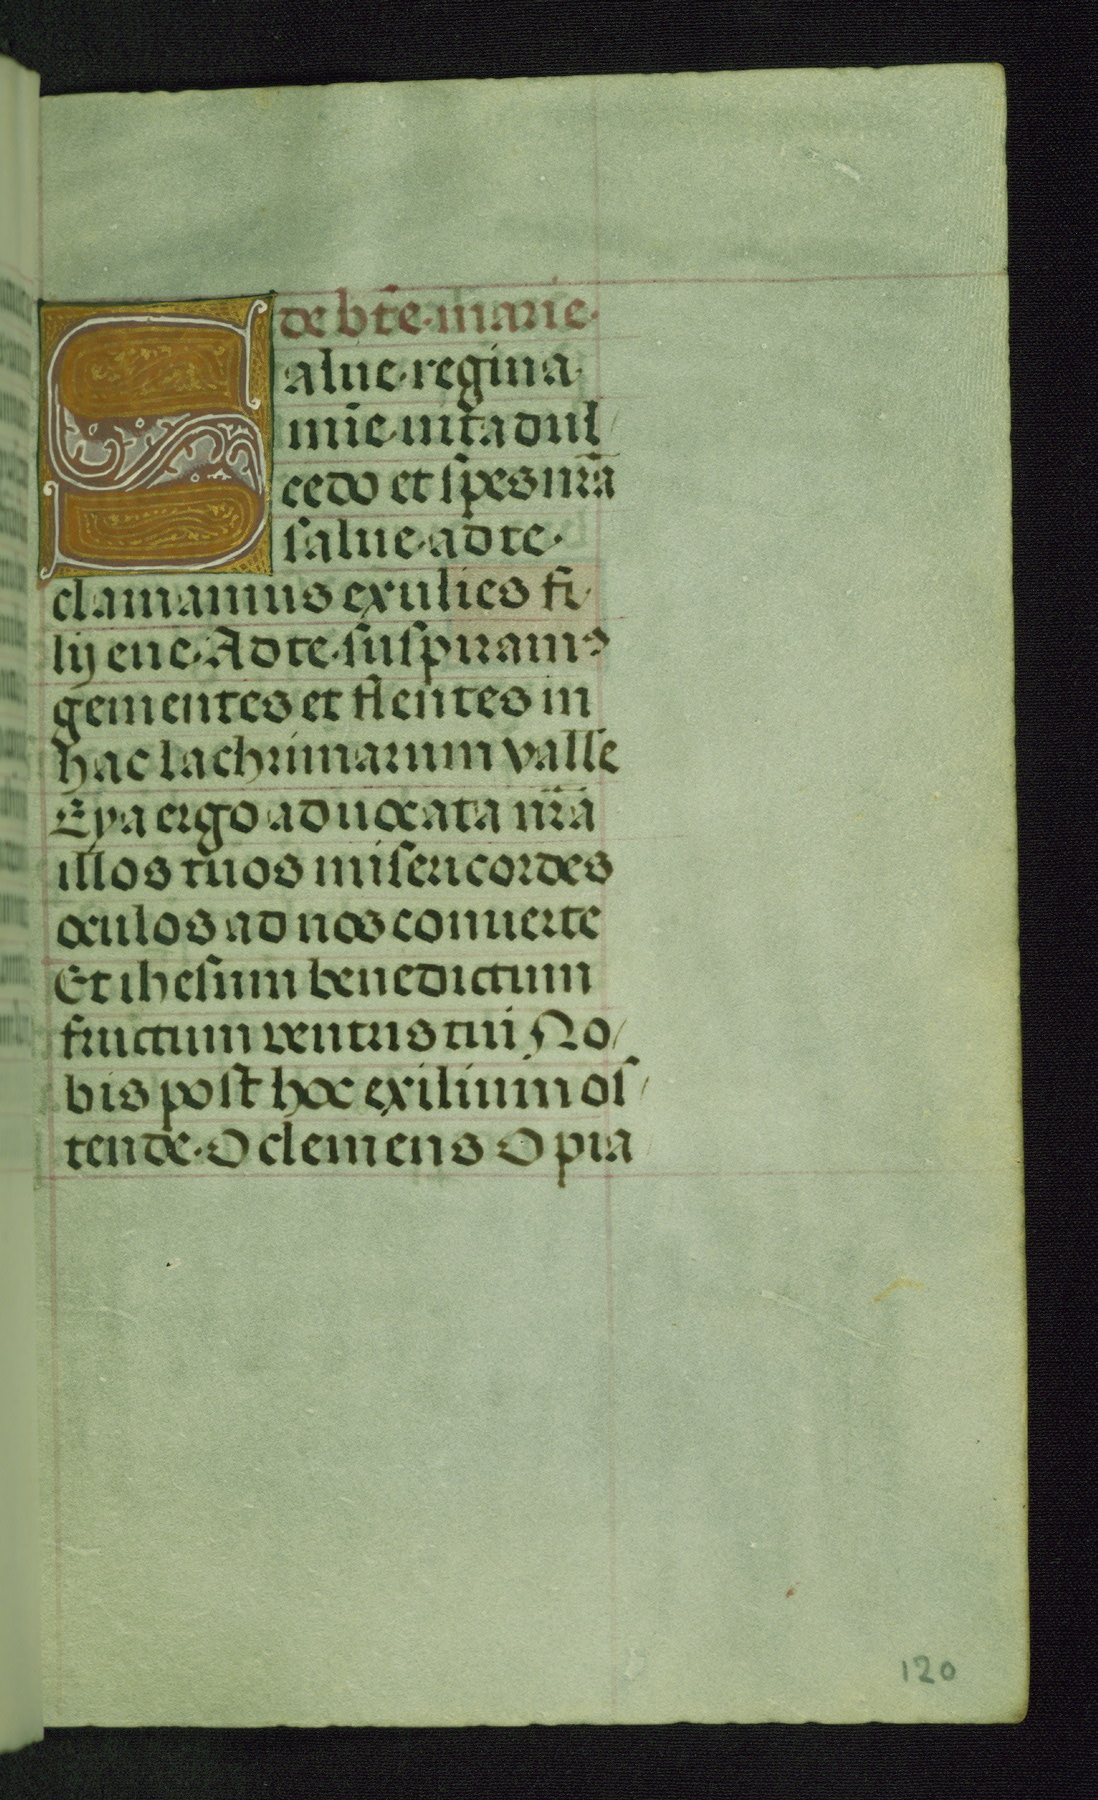 de bt̄e· marie·
Salue· regina·
mīe· uita dul/
cedo et spes nr̄a
salue· ad te·
clamamus exules fi/
lij eue· Ad te· suspiramꝰ
gementes et flentes in
hac lachrimarum valle
Eya ergo aduocata nr̄a
illos tuos misericordes
oculos ad nos conuerte
Et ihesum benedictum
fructum ventris tui No/
bis post hoc exilium os/
tende· O clemens O pia
120